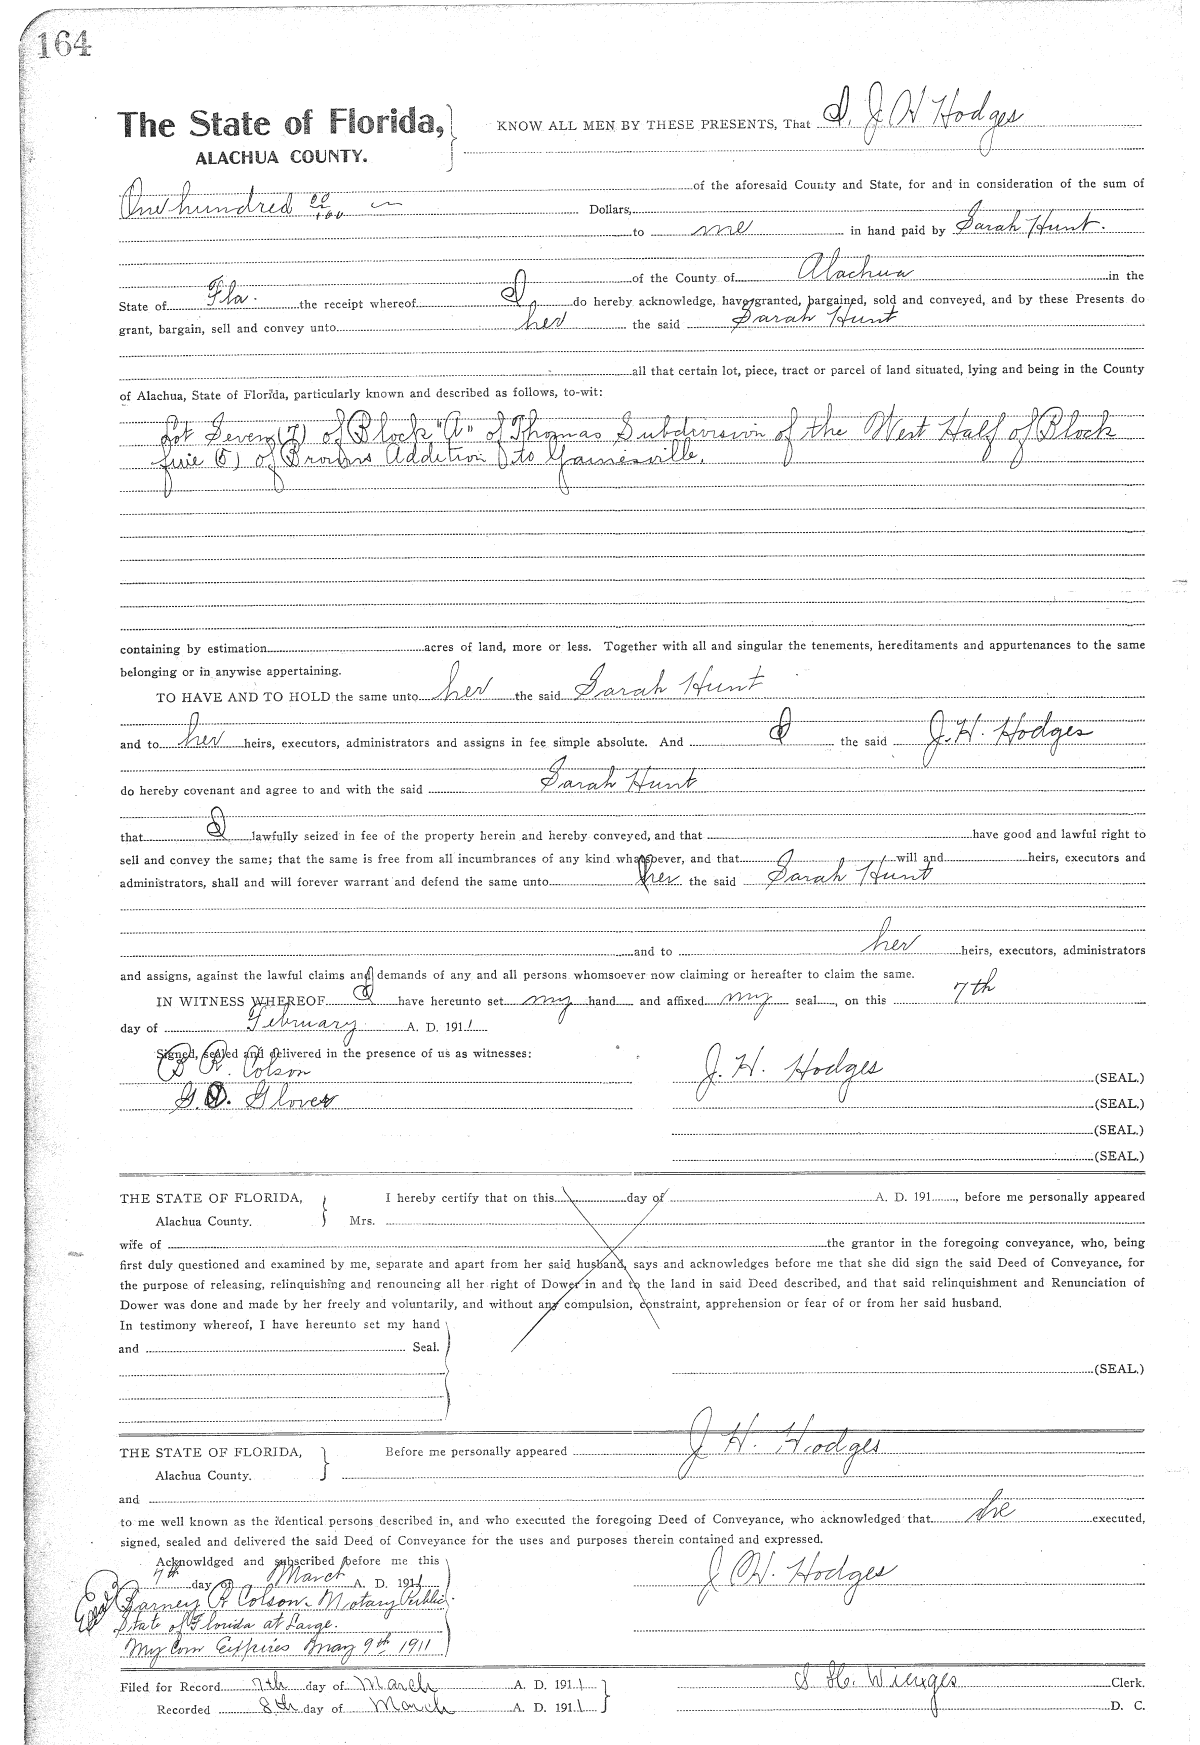 164
The State of Florida, KNOW ALL MEN BY THESE PRESENTS, That I, J H Hodges
ALACHUA COUNTY.
of the aforesaid County and State, for and in consideration of the sum of
One hundred 00/100 Dollars,
to me in hand paid by Sarah Hunt.
of the County of Alachua in the
State of Fla. the receipt whereof I do hereby acknowledge, have granted, bargained, sold and conveyed, and by these Presents do
grant, bargain, sell and convey unto her the said Sarah Hunt
all that certain lot, piece, tract or parcel of land situated, lying and being in the County
of Alachua, State of Florida, particularly known and described as follows, to-wit:
Lot Seven (7) of Block "A" of Thomas Subdivision of the West Half of Block
five (5) of Browns Addition to Gainesville.
containing by estimation acres of land, more or less. Together with all and singular the tenements, hereditaments and appurtenances to the same
belonging or in anywise appertaining.
TO HAVE AND TO HOLD the same unto her the said Sarah Hunt
and to her heirs, executors, administrators and assigns in fee simple absolute. And I the said J. H. Hodges
do hereby covenant and agree to and with the said Sarah Hunt
that I lawfully seized in fee of the property herein and hereby conveyed, and that have good and lawful right to
sell and convey the same; that the same is free from all incumbrances of any kind whatsoever, and that will and heirs, executors and
administrators, shall and will forever warrant and defend the same unto her the said Sarah Hunt
and to her heirs, executors, administrators
and assigns, against the lawful claims and demands of any and all persons whomsoever now claiming or hereafter to claim the same.
IN WITNESS WHEREOF I have hereunto set my hand and affixed my seal, on this 7th
day of February A. D. 1911
Signed, sealed and delivered in the presence of us as witnesses:
B R. Colson J. H. Hodges (SEAL.)
G. D. Glover (SEAL.)
(SEAL.)
(SEAL.)
THE STATE OF FLORIDA, I hereby certify that on this day of A. D. 191 , before me personally appeared
Alachua County. Mrs.
wife of the grantor in the foregoing conveyance, who, being
first duly questioned and examined by me, separate and apart from her said husband, says and acknowledges before me that she did sign the said Deed of Conveyance, for
the purpose of releasing, relinquishing and renouncing all her right of Dower in and to the land in said Deed described, and that said relinquishment and Renunciation of
Dower was done and made by her freely and voluntarily, and without any compulsion, constraint, apprehension or fear of or from her said husband.
In testimony whereof, I have hereunto set my hand
and Seal.
(SEAL.)
THE STATE OF FLORIDA, Before me personally appeared J H. Hodges
Alachua County.
and
to me well known as the identical persons described in, and who executed the foregoing Deed of Conveyance, who acknowledged that he executed,
signed, sealed and delivered the said Deed of Conveyance for the uses and purposes therein contained and expressed.
Acknowldged and subscribed before me this
7th day of March A. D. 1911 J H. Hodges
Seal Barney R Colson. Notary Public.
State of Florida at Large.
My Com Expires May 9th 1911
Filed for Record 7th day of March A. D. 1911 S. H. Wienges Clerk.
Recorded 8th day of March A. D. 1911 D. C.